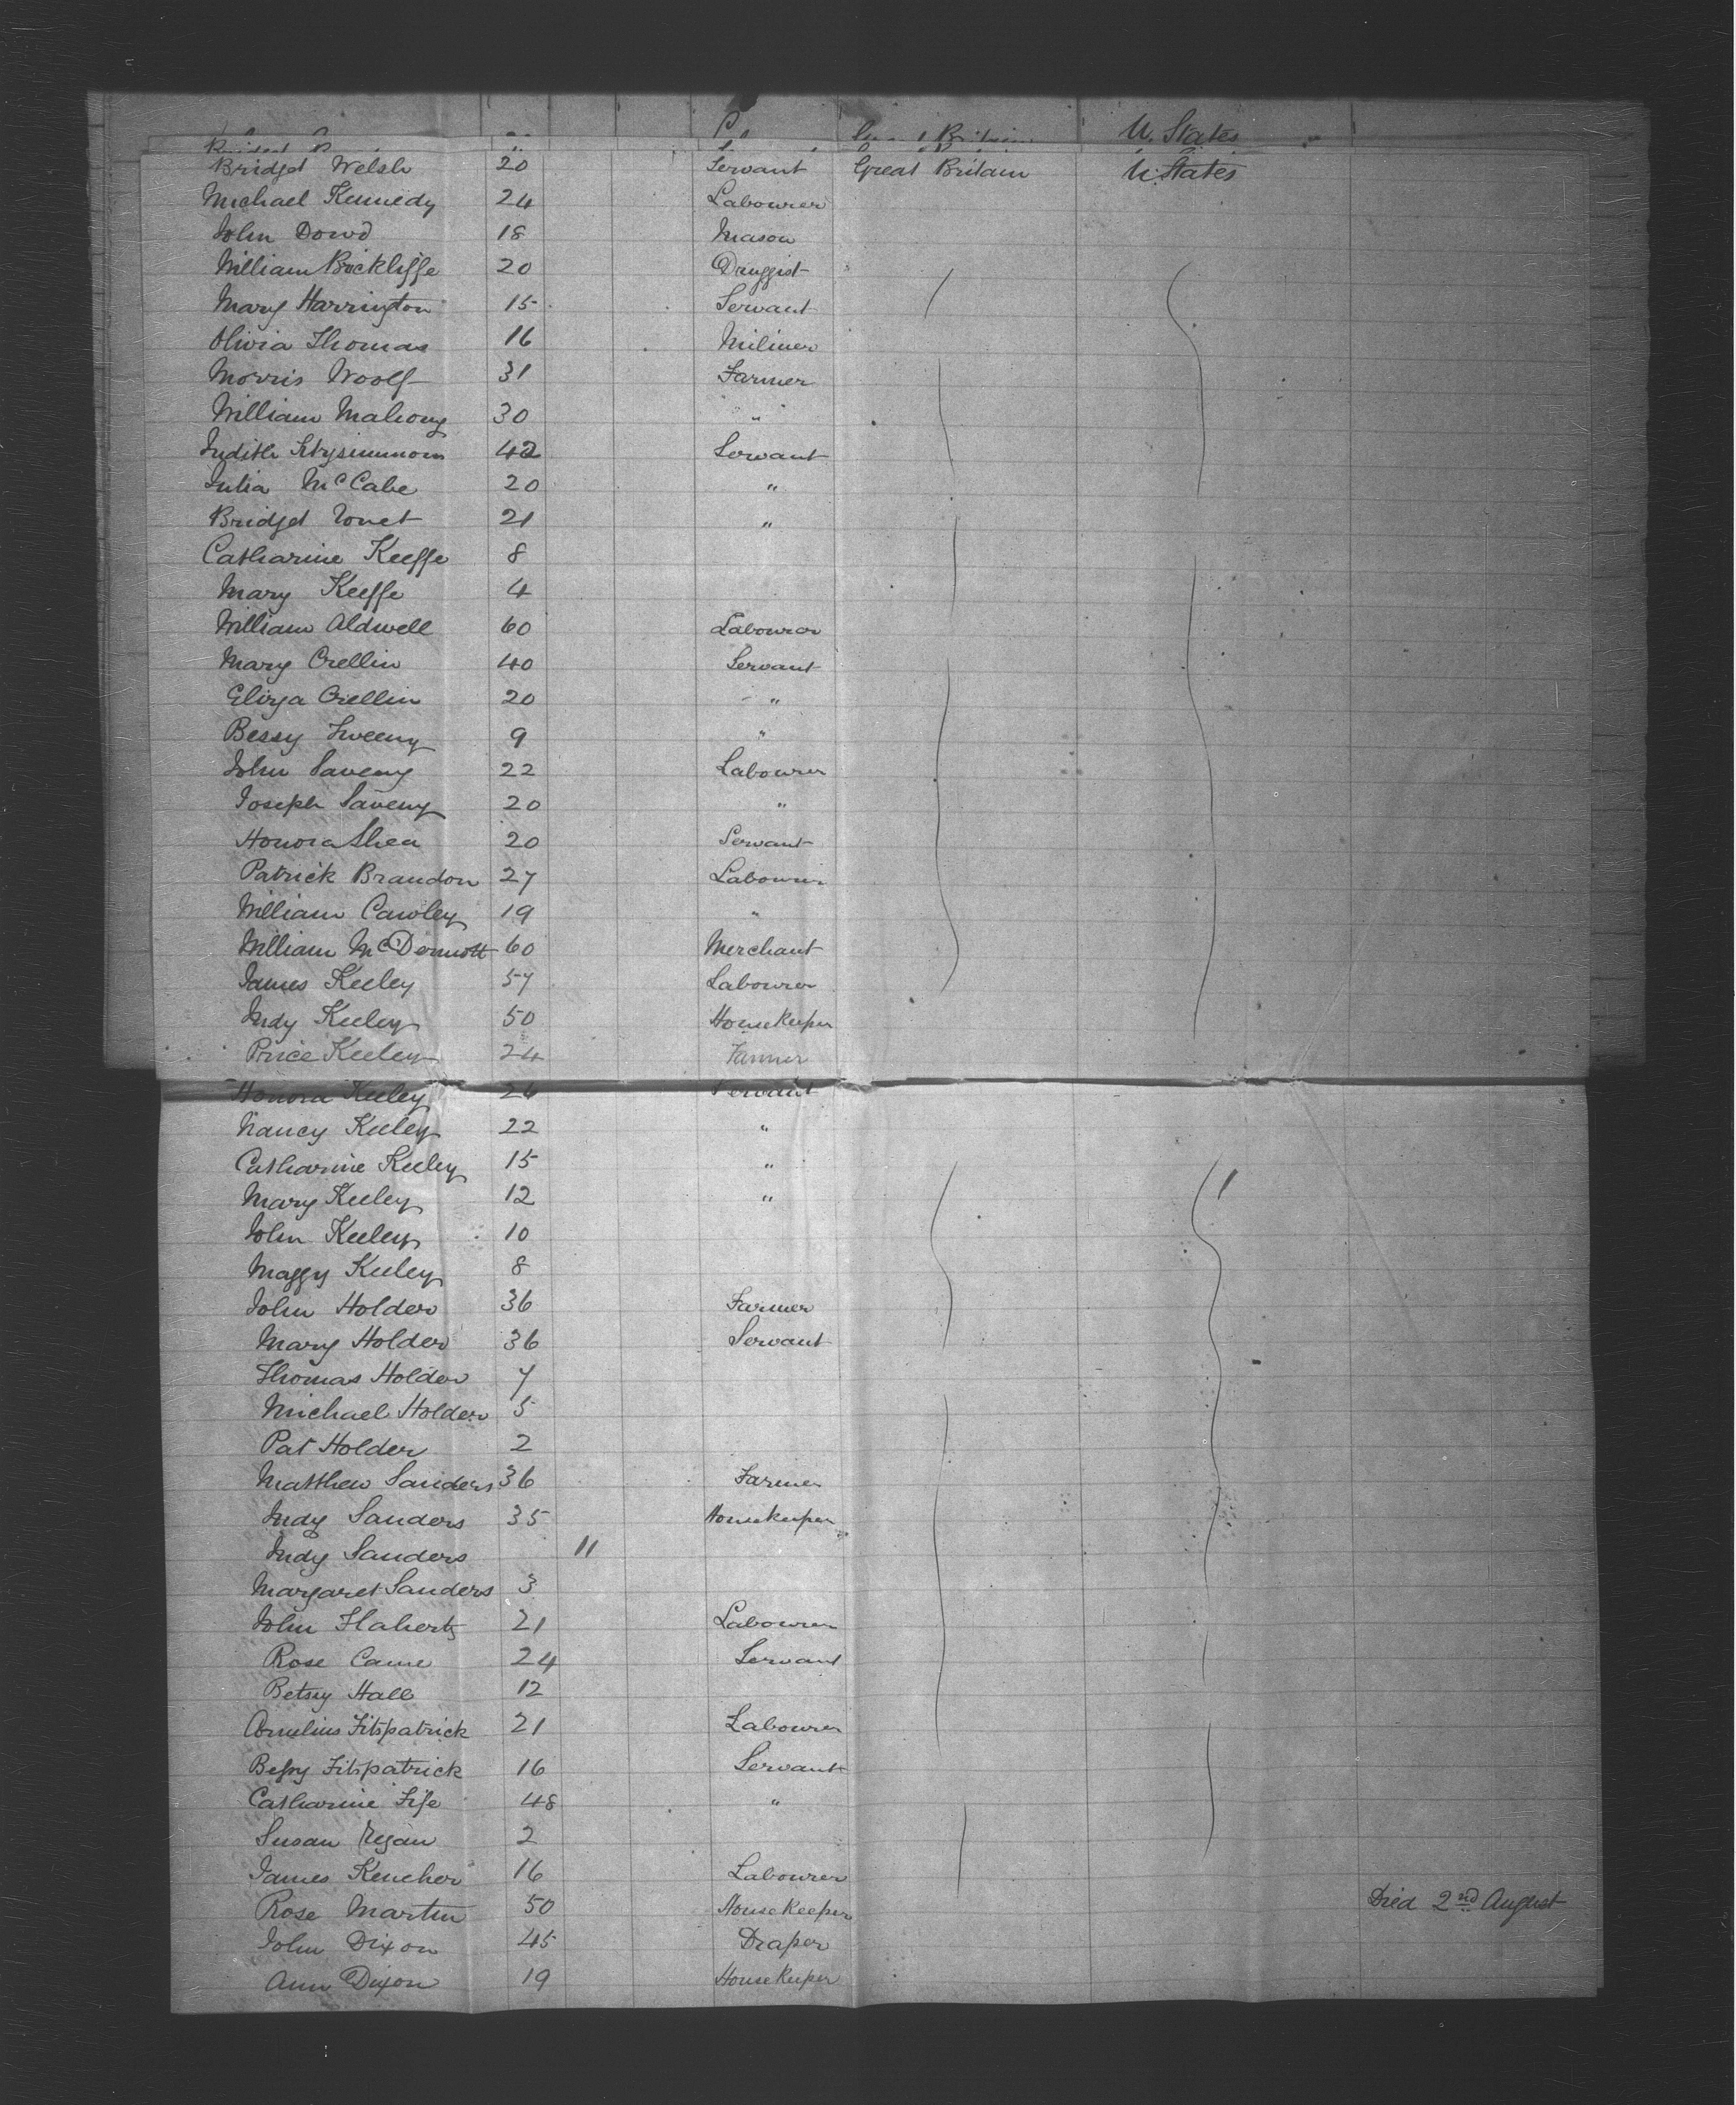 U. States
Bridget Welsh 20 Servant Great Britain U. States
Michael Kennedy 24 Labourer
John Dowd 18 Mason
William Bickliffe 20 Druggist
Mary Harrington 15 Servant
Olivia Thomas 16 Miliner
Morris Woolf 31 Farmer
William Mahony 30 "
Judith Fitzsimmons 42 Servant
Julia McCabe 20 "
Bridget 21 "
Catharine Keeffe 8
Mary Keeffe 4
William Aldwell 60 Labourer
Mary Crellin 40 Servant
Eliza Crellin 20 "
Bessy Sweeny 9 "
John Saveny 22 Labourer
Joseph Saveny 20 "
Honora Shea 20 Servant
Patrick Brandon 27 Labourer
William Cawley 19 "
William McDermott 60 Merchant
James Keeley 57 Labourer
Judy Keeley 50 Housekeeper
Price Keeley 24 Farmer
Honora Keeley 26 Servant
Nancy Keeley 22 "
Catharine Keeley 15 "
Mary Keeley 12 "
John Keeley 10
Maggy Keeley 8
John Holder 36 Farmer
Mary Holder 36 Servant
Thomas Holder 7
Michael Holder 5
Pat Holder 2
Matthew Sanders 36 Farmer
Judy Sanders 35 Housekeeper
Judy Sanders 11
Margaret Sanders 3
John Flaherty 21 Labourer
Rose Came 24 Servant
Betsy Hall 12
Cornelius Fitspatrick 21 Labourer
Bessy Fitspatrick 16 Servant
Catharine Fife 48 "
Susan Regan 2
James Kencher 16 Labourer
Rose Martin 50 Housekeeper Died 2nd August
John Dixon 45 Draper
Ann Dixon 19 Housekeeper